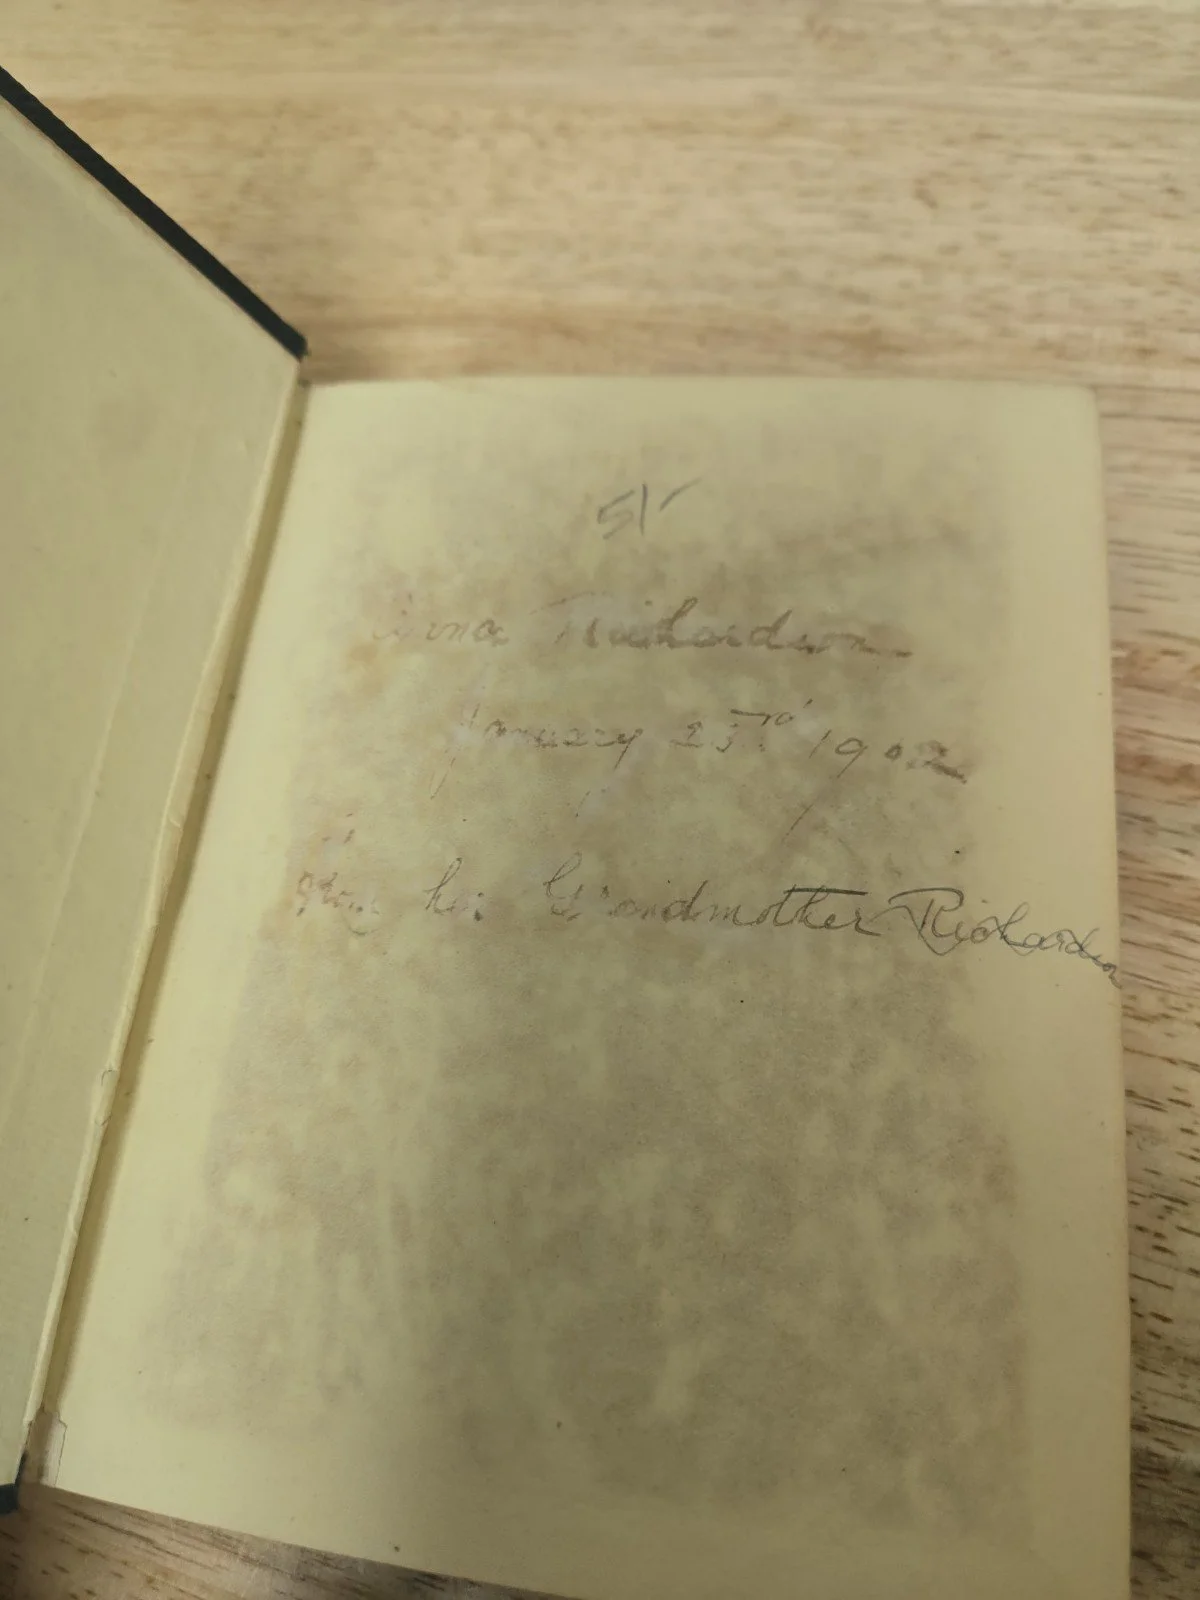 51
Richardson
January 23rd 1902
from her Grandmother Richardson